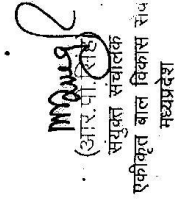 (आर.पी. सिंह)
संयुक्त संचालक
एकीकृत बाल विकास सेव
मध्यप्रदेश